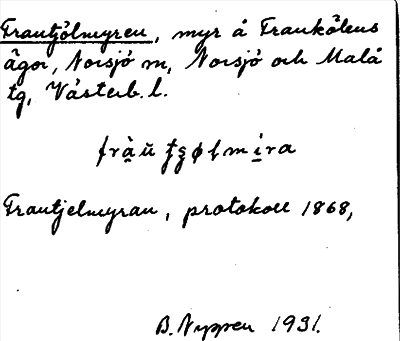 Frautjölmyren, myr å Frankölens
ägor, Norsjö sn, Norsjö och Malå
tg, Västerb. l.
Frautjelmyran, protokoll 1868,
B. Nyppen 1931.